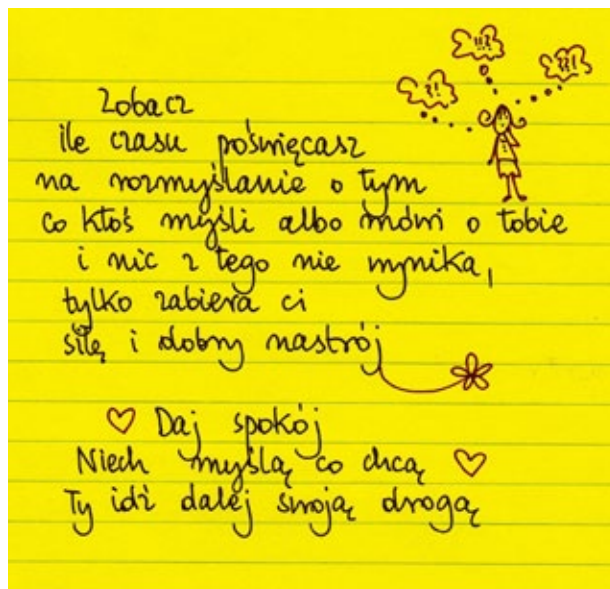 ?!
!!?
??!
Zobacz
ile czasu poświęcasz
na rozmyślanie o tym
co ktoś myśli albo mówi o tobie
i nic z tego nie wynika,
tylko zabiera ci
siłę i dobry nastrój
Daj spokój
Niech myślą co chcą
Ty idź dalej swoją drogą